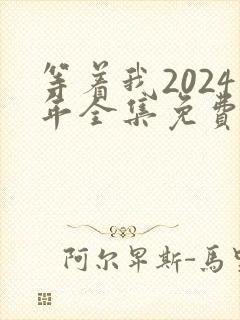 等着我2024
年全集免費
阿尔卑斯-馬